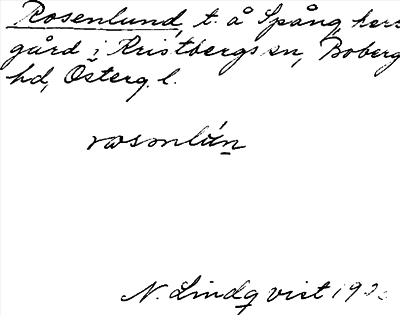 Rosenlund, t. å Spång, herr
gård i Kristbergs sn, Boberg
hd, Österg. l.
N. Lindqvist